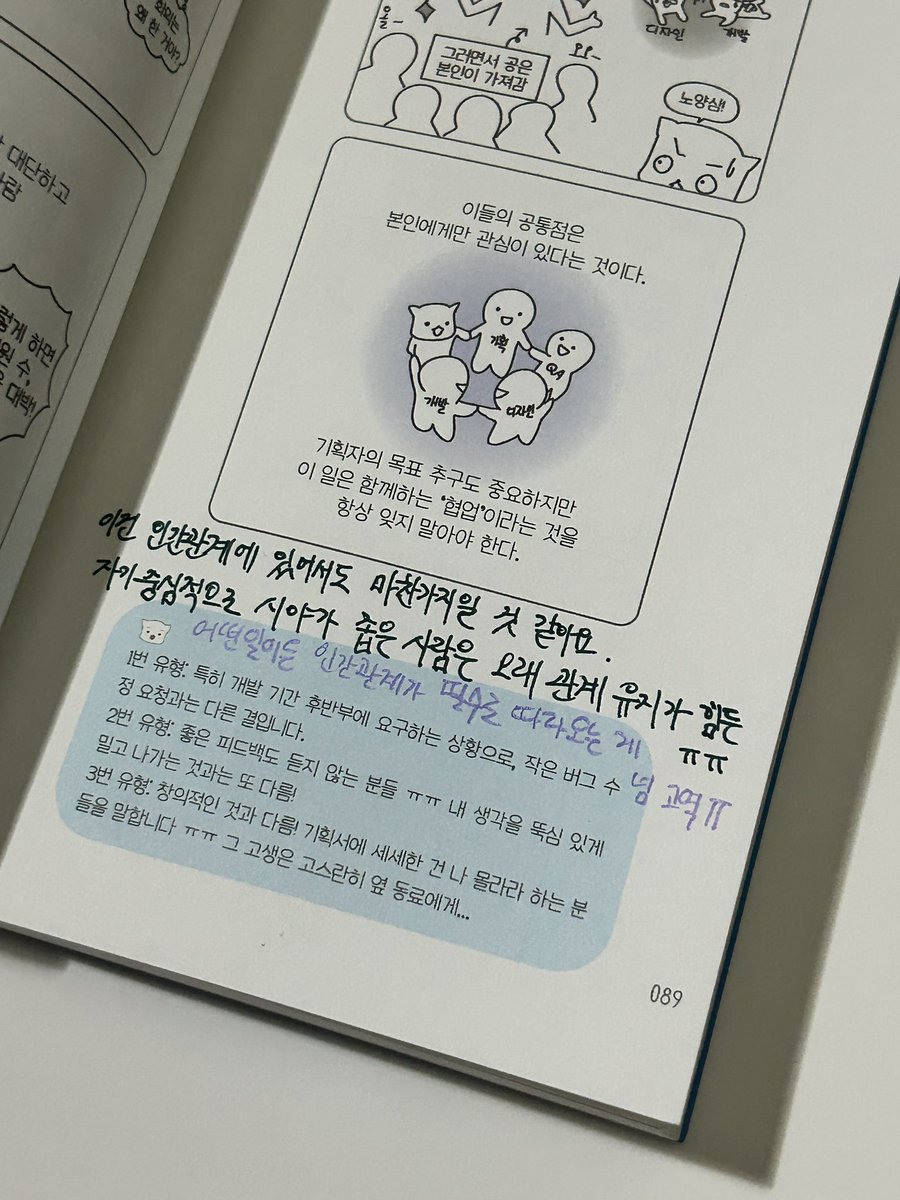 회의는
왜 한 거야?
대단하고
사람
렇게 하면
원 수,
대박!
오올~
그러면서 공은
본인이 가져감
오오~
디자인
개발
노양심!
이들의 공통점은
본인에게만 관심이 있다는 것이다.
기획
QA
개발
디자인
기획자의 목표 추구도 중요하지만
이 일은 함께하는 '협업'이라는 것을
항상 잊지 말아야 한다.
이건 인간관계에 있어서도 마찬가지일 것 같아요.
자기중심적으로 시야가 좁은 사람은 오래 관계 유지가 힘든
ㅠㅠ
어떤일이든 인간관계가 필수로 따라오는 게
넘 고역ㅠ
1번 유형: 특히 개발 기간 후반부에 요구하는 상황으로, 작은 버그 수
정 요청과는 다른 결입니다.
2번 유형: 좋은 피드백도 듣지 않는 분들 ㅠㅠ 내 생각을 뚝심 있게
밀고 나가는 것과는 또 다름!
3번 유형: 창의적인 것과 다름! 기획서에 세세한 건 나 몰라라 하는 분
들을 말합니다 ㅠㅠ 그 고생은 고스란히 옆 동료에게...
089